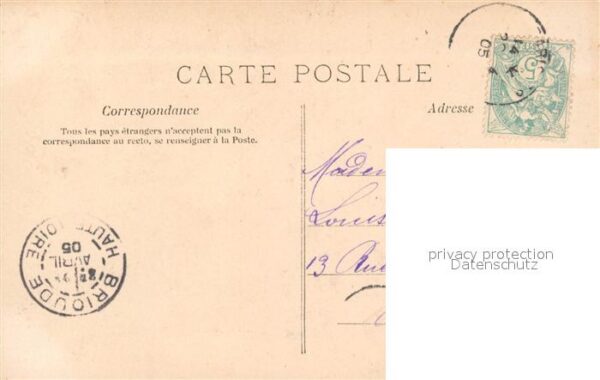 CARTE POSTALE
Correspondance
Tous les pays étrangers n'acceptent pas la
correspondance au recto, se renseigner à la Poste.
Adresse
13 Rue
privacy protection
Datenschutz
BRIOUDE
HAUTE-LOIRE
AVRIL
05
05
5